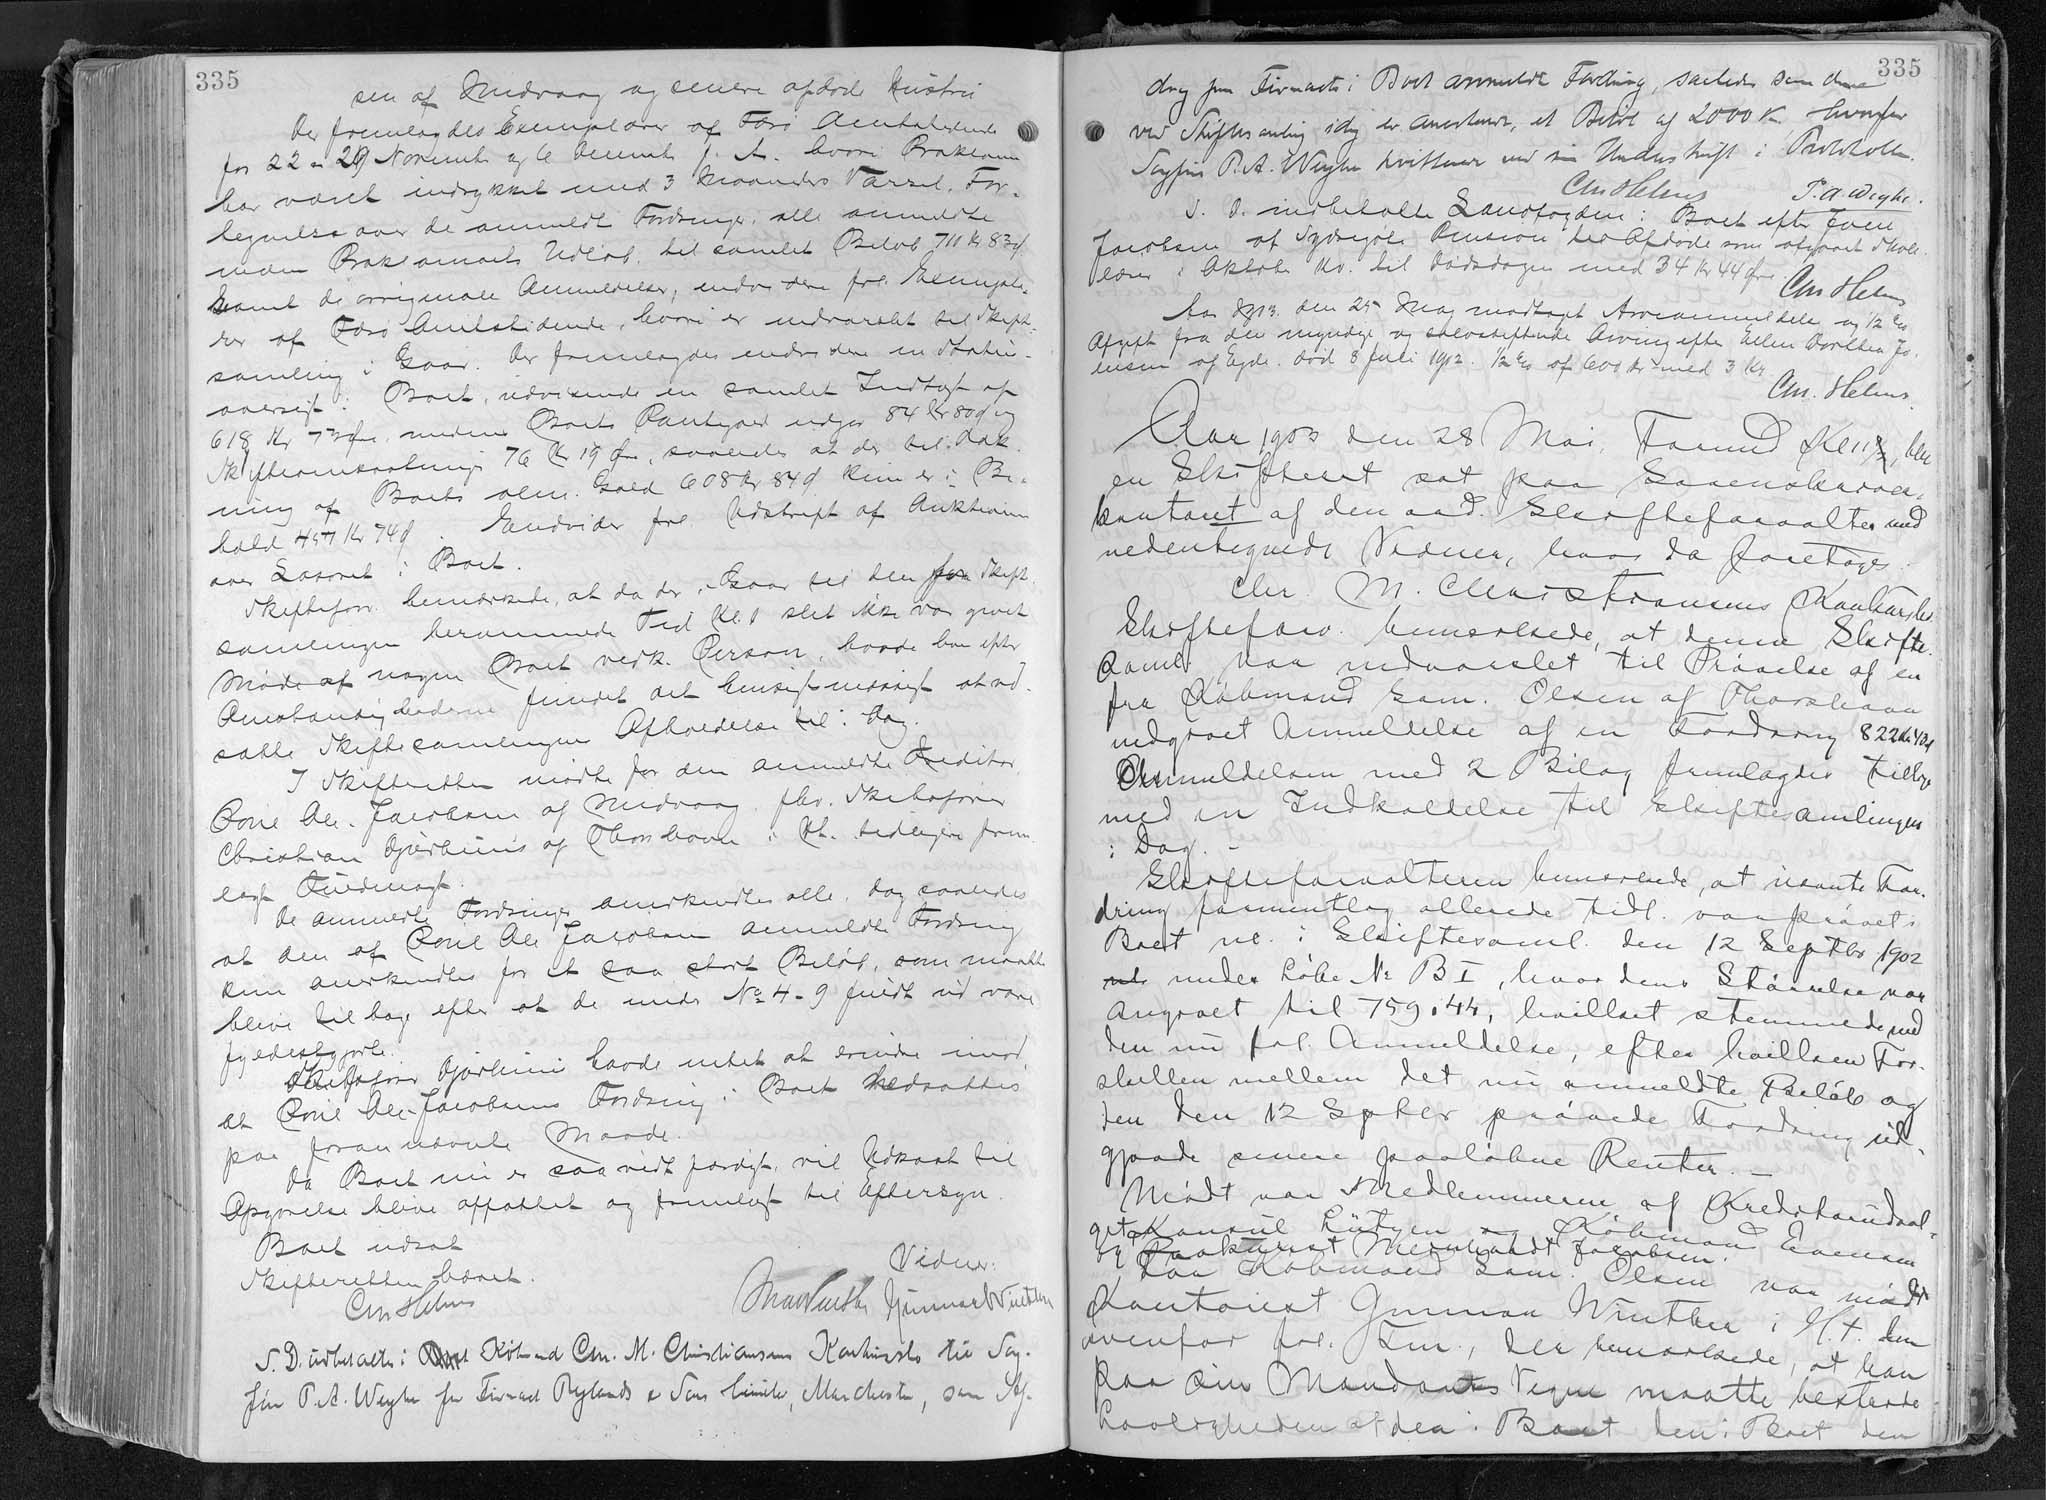 335
sen af Midvaag og senere afdøde Hustru
Der fremlagdes Exemplarer af Færø Amtstidende
for 22 - 29 Novemb. og 6 Decemb. f. A. hvori Proklama
har været indrykket med 3 Maaneders Varsel. For-
tegnelse over de anmeldt Fordringer, alle anmeldte
inden Proklamaets Udløb, til samlet Beløb 711 Kr 83 ø
samt de originale Anmeldelser, endvidere frl. Exempla-
rer af Færø Amtstidende, hvori er indvarslet til Skifte-
samling i Gaar. Der fremlagdes endvidere en Status-
oversigt i Boet, udvisende en samlet Indtægt af
618 Kr 73 Øre, medens Boets Pantegæld udgør 84 Kr 80 ø og
Skifteomkostninger 76 Kr 19 Øre, saaledes at der til Dæk-
ning af Boets alm. Gæld 608 Kr 84 ø kun er i Be-
hold 457 Kr 74 ø. Endvidere frl. Udskrift af Auktionen
over Løsøret i Boet.
Skifteforv. bemærkede, at da der i Gaar til den Skifte-
samlingen berammede Tid Kl. 1 slet ikke var givet
Møde af nogen Boet vedk. Person, havde han efter
Omstændighederne fundet det hensigtsmæssigt at ud-
sætte Skiftesamlingen Afholdelse til i Dag.
I Skifteretten mødte for den anmeldte Kreditor
Poul Ole Jacobsen af Midvaag, fhv. Skibsfører
Christian Djurhuus af Thorshavn i Kh. tidligere frem-
lagt Fuldmagt.
De anmeldte Fordringer anerkendtes alle, dog saaledes
at den af Poul Ole Jacobsen anmeldte Fordring
kun anerkendtes for et saa stort Beløb, som maatte
blive tilbage efter at de under No 4-9 fuldt ud vare
fyldestgjorte.
Skibsfører Djurhuus havde intet at erindre imod
at Poul Ole Jacobsens Fordring i Boet nedsattes
paa foran nævnte Maade.
Da Boet nu er saavidt færdigt, vil Udkast til
Opgørelse blive affattet og fremlagt til Eftersyn.
Boet udsat
Skifteretten hævet.
Chr Helms
Vidner:
Gunnar Winther
S. D. udbetaltes i Boet Købmd Chr. M. Christiansens Konkursbo til Sag-
fører P. A. Weyhe for Firmaet Rylands & Sons Limited, Manchester, som Af-
335
drag paa Firmaets i Boet anmeldte Fordring, saaledes som denne
ved Skiftesamling idag er anerkendt, et Beløb af 2000 Kr hvorfor
Sagfører P. A. Weyhe kvitterer ved sin Underskrift i Protokollen.
Chr Helms P. A. Weyhe.
S. D. indbetalte Landfogden i Boet efter Joen
Jacobsen af Sydregøte Pension til Afdøde som afgaaet Skole-
lærer i Oktober Kv. til Dødsdagen med 34 Kr 44 Øre.
Chr Helms
Aar 1903 den 25 Maj modtaget Arveanmeldelse og ½ %
Afgift fra den myndige og selvskiftende Arving efter Ellen Dorthea Jo-
ensen af Ejde. død 8 Juli 1902. ½ % af 600 Kr med 3 Kr
Chr. Helms.
Aar 1903 den 28 Mai, Formd Kl 11½, blev
en Skifteret sat paa Sorenskriver-
kontoret af den ord. Skifteforvalter med
nedentegnede Vidner, hvor da foretoges:
Chr. M. Christiansens Konkursbo.
Skifteforv. bemærkede, at denne Skifte-
saml. var indvarslet til Prøvelse af en
fra Købmand Sam. Olsen af Thorshavn
indgivet Anmeldelse af en Fordring 822 Kr 43 ø
Anmeldelsen med 2 Bilag fremlagdes tillige
med en Indkaldelse til Skiftesamlingen
i Dag. -
Skifteforvalteren bemærkede, at nævnte For-
dring formentlig allerede tidl. var prøvet i
Boet nl. i Skiftesaml. den 12 Septbr 1902
under Løbe No B I, hvor dens Størrelse var
angivet til 759,44, hvilket stemmede med
den nu frl. Anmeldelse, efter hvilken For-
skellen mellem det nu anmeldte Beløb og
den den 12 Septbr prøvede Fordring ud-
gjorde senere paaløbne Renter. -
Mødt var Medlemmerne af Kreditorudval-
get Konsul Lützen Købmand Evensen
og Prokurist Meinhardt Jacobsen.
For Købmand Sam. Olsen var mødt
Kontorist Gunnar Winther i H. t. den
ovenfor frl. Fm., der bemærkede, at han
paa sin Mandants Vegne maatte bestride
i Boet den i Boet den